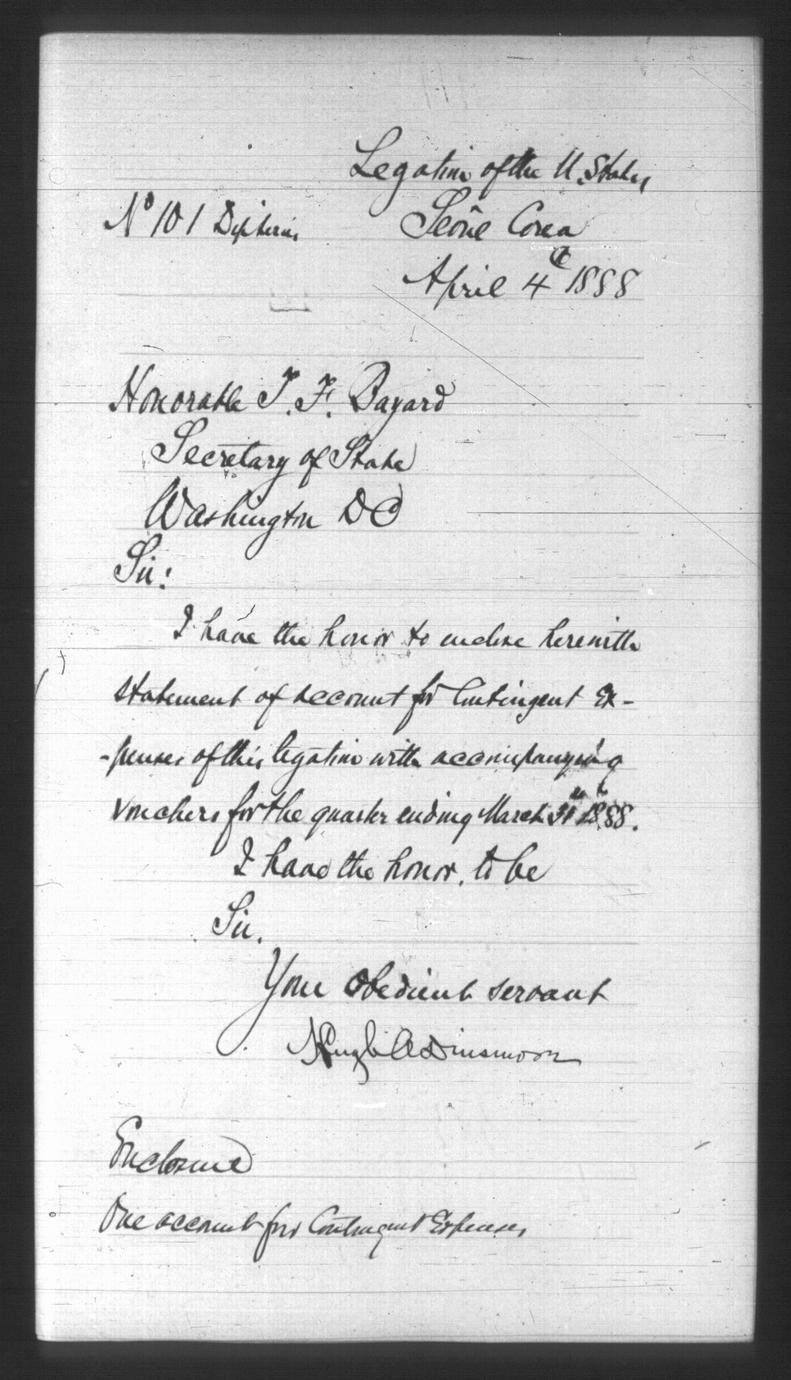 Legation of the U. States
No 101 Dip Series
Seoúl Corea
April 4th 1888
Honorable T. F. Bayard
Secretary of State
Washington DC
Sir:
I have the honor to enclose herewith
statement of account for Contingent Ex-
-penses of this legation with accompanying
vouchers for the quarter ending March 31st 1888.
I have the honor, to be
Sir,
Your obedient servant
Hugh A Dinsmore
Enclosure
One account for Contingent Expenses